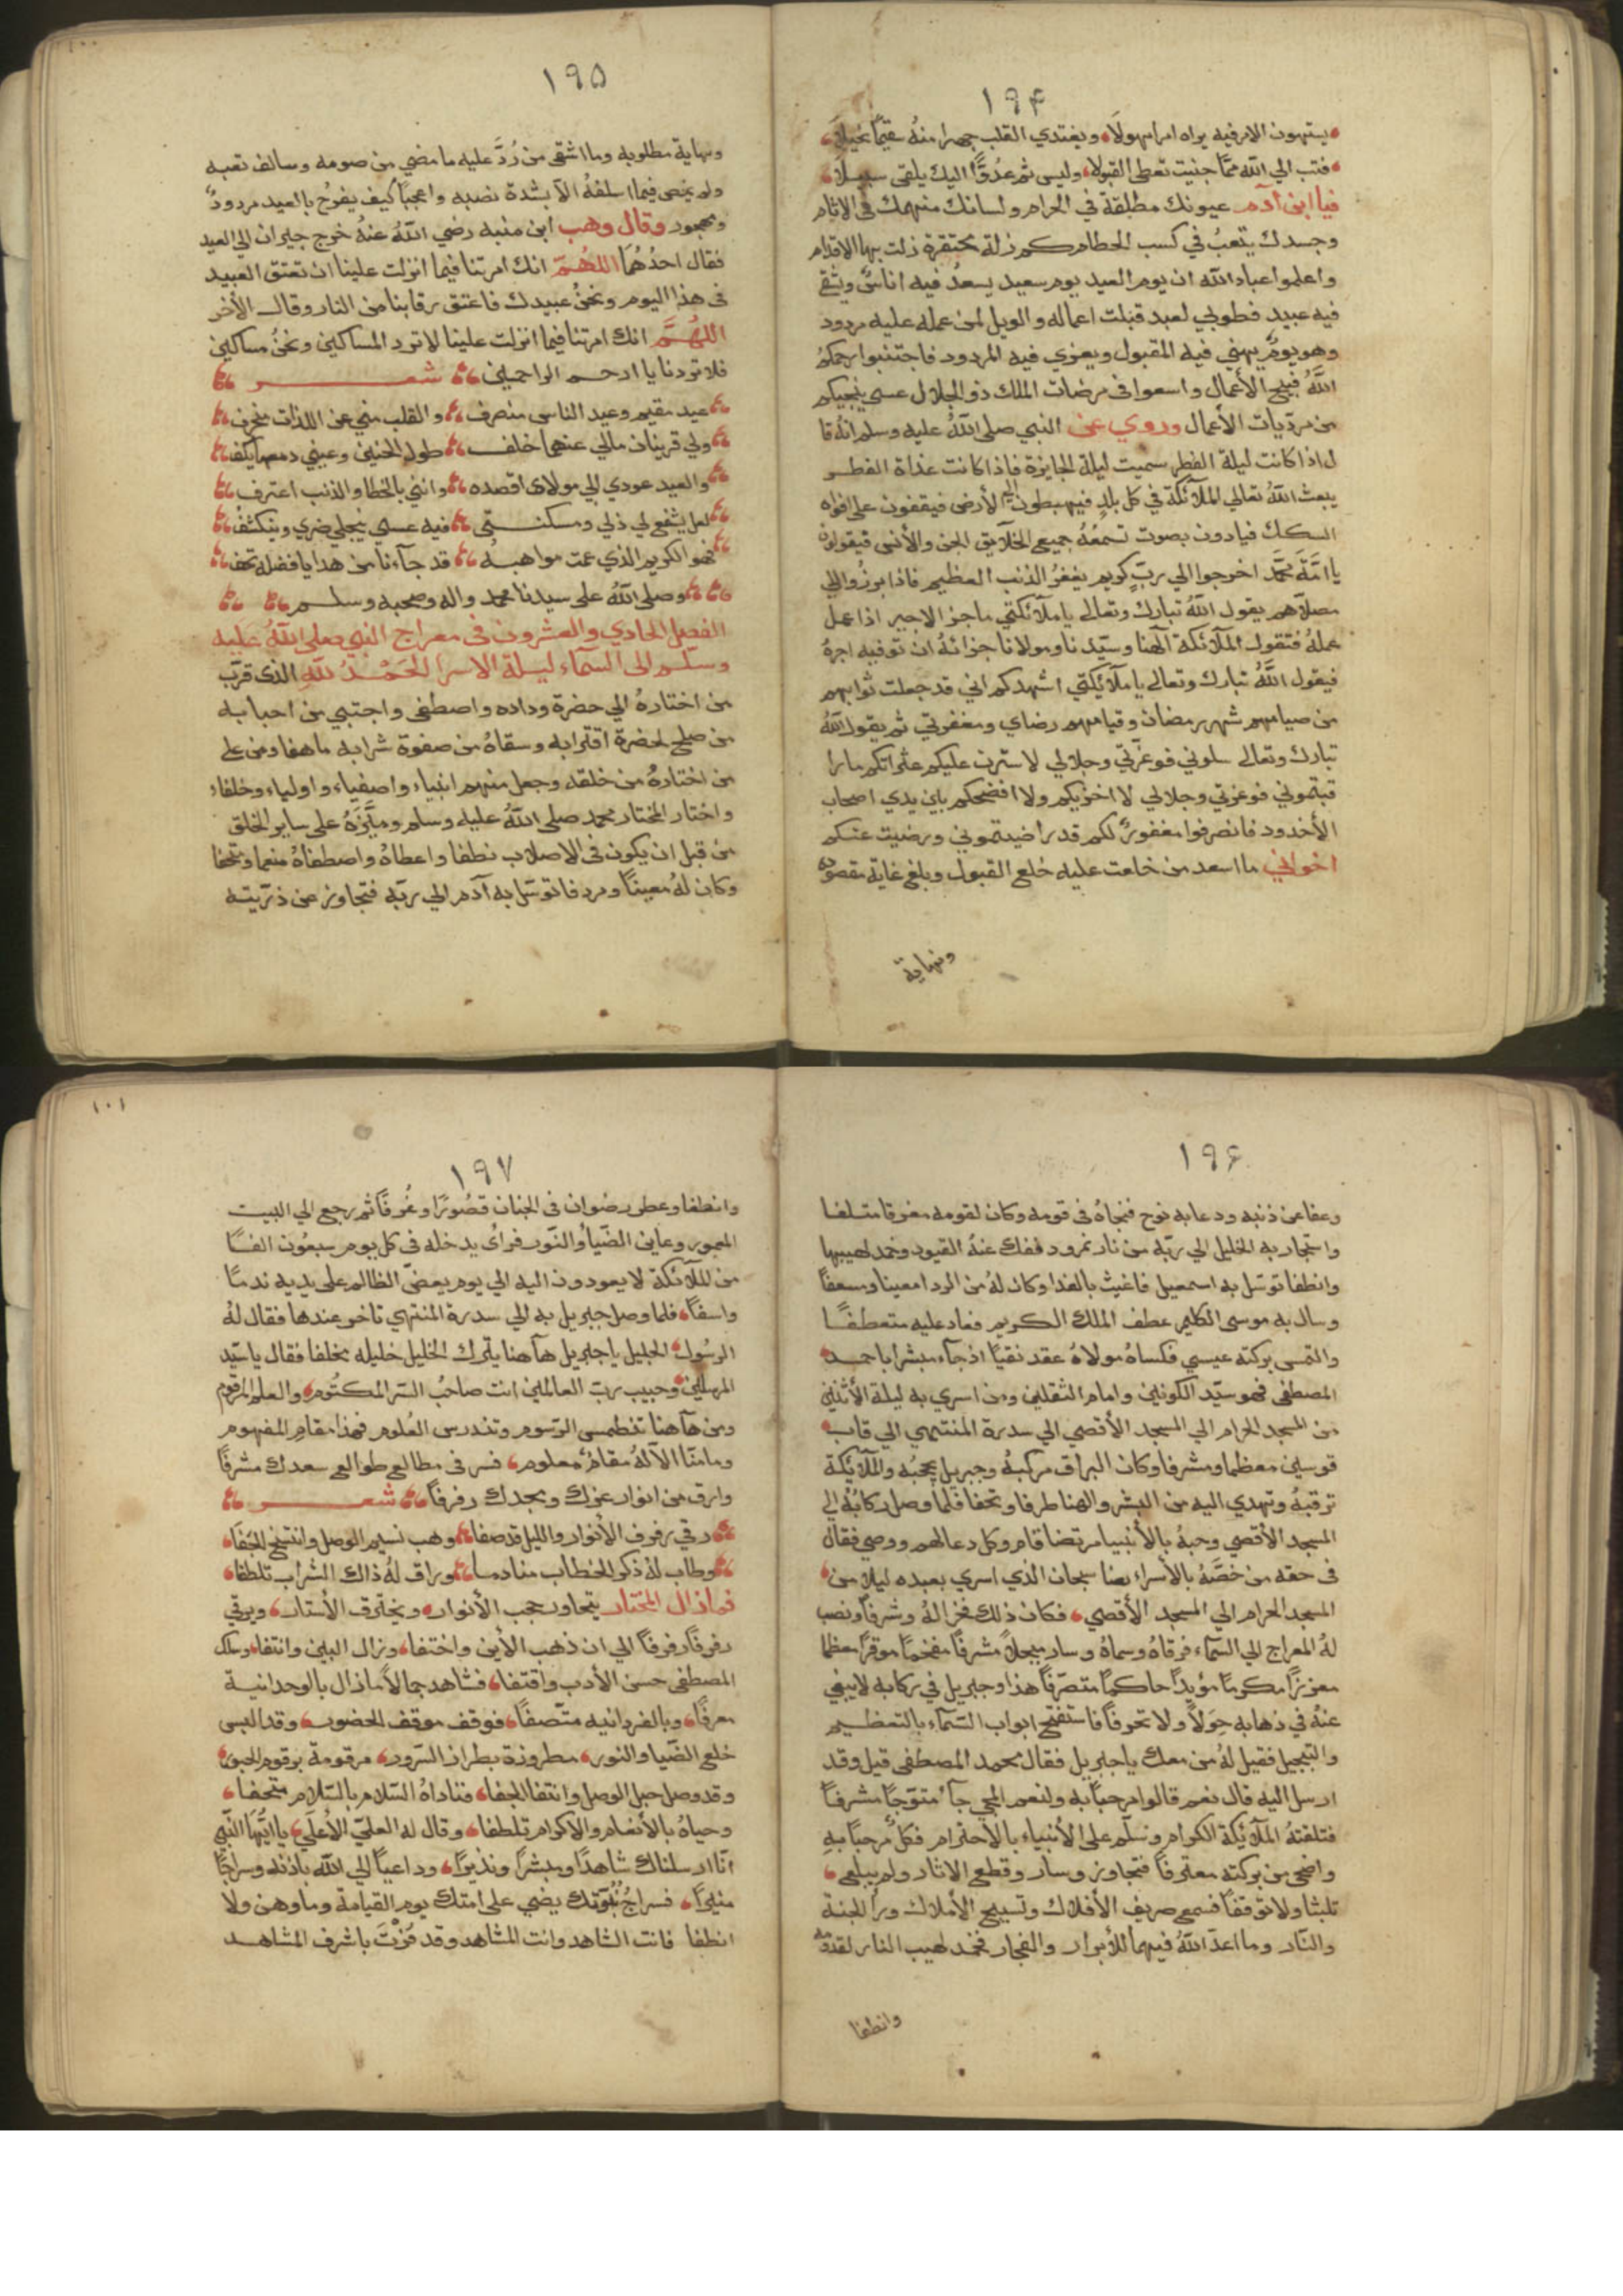 ١٩٤
يستهون الامر فيه يراه امرا مهولا ويغتدي القلب جهرا منه سقيما نحيلا
فتب الي الله مما جنيت تعطى القبولا وليس ثم عدوا اليك يلقى سبيلا
فيا ابن آدم عيونك مطلقة في الحرام ولسانك منهمك في الاثام
وجسدك يتعب في كسب الحطام كم زلة محتقرة زلت بها الاقدام
واعلموا عباد الله ان يوم العيد يوم سعيد يسعد فيه اناس ويشقي
فيه عبيد فطوبي لعبد قبلت اعماله والويل لمن عمله عليه مردود
وهو يوم يهني فيه المقبول ويعزي فيه المردود فاجتنبوا رحمكم
الله قبيح الأعمال واسعوا في مرضات الملك ذو الجلال عسى ينجيكم
من مرديات الأعمال وروي عن النبي صلى الله عليه وسلم انه قا
ل اذا كانت ليلة الفطر سميت ليلة الجايزة فاذا كانت غداة الفطر
يبعث الله تعالي الملآئكة في كل بلد فيهبطون الي الأرض فيقفون على افواه
السكك فيادون بصوت تسمعه جميع الخلآيق الجن والأنس فيقولون
يا امة محمد اخرجوا الي رب كريم يغفر الذنب العظيم فاذا برزوا الي
مصلاهم يقول الله تبارك وتعالى يا ملآئكتي ما جزا الاجير اذا عمل
عمله فتقول الملآئكة آلهنا وسيدنا ومولانا جزائه ان توفيه اجره
فيقول الله تبارك وتعالى يا ملآئكتي اشهدكم اني قد جعلت ثوابهم
من صيامهم شهر رمضان وقيامهم رضاي ومغفرتي ثم يقول الله
تبارك وتعالى سلوني فوعزتي وجلالي لاسترن عليكم عثراتكم ما را
قبتموني فوعزتي وجلالي لا اخزيكم ولا افضحكم بين يدي اصحاب
الأخدود فانصرفوا مغفور لكم قد راضيتموني ورضيت عنكم
اخواني ما اسعد من خلعت عليه خلع القبول وبلغ غاية مقصوده
ونهاية
١٩٥
ونهاية مطلوبه وما اشقى من رد عليه ما مضي من صومه وسالف تعبه
ولم يحض فيما اسلفه الا بشدة نصبه واعجبا كيف يفرح بالعيد مردود
ومهجور وقال وهب ابن منبه رضي الله عنه خرج جيران الي العيد
فقال احدهما اللهم انك امرتنا فيما انزلت علينا ان نعتق العبيد
في هذا اليوم ونحن عبيدك فاعتق رقابنا من النار وقال الأخر
اللهم انك امرتنا فيما انزلت علينا لا نرد المساكين ونحن مساكين
فلا تردنا يا ارحم الراحمين شعر
عيد مقيم وعيد الناس منصرف والقلب مني عن اللذات منحرف
ولي قرينان مالي عنهما خلف طول الحنين وعيني دمعها يكف
والعيد عودي الي مولاى اقصده وانني بالخطا والذنب اعترف
لعل يشفع لي ذلي ومسكنتي فيه عسى ينجلي ضري وينكشف
فهو الكريم الذي عمت مواهبه قد جآءنا من هدايا فضله تحف
وصلى الله على سيدنا محمد واله وصحبه وسلم
الفصل الحادي والعشرون في معراج النبي صلى الله عليه
وسلم الى السمآء ليلة الاسرا الحمد لله الذى قرب
من اختاره الي حضرة وداده واصطفى واجتبي من احبابه
من صلح لحضرة اقترابه وسقاه من صفوة شرابه ما هفا ومن على
من اختاره من خلقه وجعل منهم انبياء واصفياء واولياء وخلفاء
واختار المختار محمد صلى الله عليه وسلم وميزه على ساير الخلق
من قبل ان يكون في الاصلاب نطفا واعطاه واصطفاه منعما ومتحفا
وكان له معينا ومردفا توسل به آدم الي ربه فتجاوز عن ذريته
١٠١
١٩٦
وعفا عن ذنبه ودعا به نوح فنجاه في قومه وكان لقومه مغرقا متلفا
واستجار به الخليل الي ربه من نار نمرود ففك عنه القيود وخمد لهيبها
وانطفا توسل به اسمعيل فاغيث بالفدا وكان له من الردا معينا ومسعفا
وسال به موسى الكليم عطف الملك الكريم فعاد عليه متعطفا
والتمس بركته عيسي فكساه مولاه عقد نقيا اذ جآء مبشرا باحمد
المصطفى فهو سيد الكونين وامام الثقلين ومن اسري به ليلة الأثنين
من المسجد الحرام الي المسجد الأقصي الي سدرة المنتهي الي قاب
قوسين معظما ومشرفا وكان البراق مركبه وجبريل يحجبه والملآئكة
ترقبه وتهدي اليه من البشر والهنا طرفا وتحفا فلما وصل ركابه الي
المسجد الأقصي وحبه بالأنبيا مرتضا قام وكل دعا لهم ووصي فقال
في حقه من خصه بالأسراء بعنا سبحان الذي اسري بعبده ليلا من
المسجد الحرام الي المسجد الأقصي فكان ذلك فخرا له وشرفا ونصب
له المعراج الي السمآء فرقاه وسماه وسار مبجلا مشرفا مفخما موقرا معظما
معززا مكرما مؤيدا حاكما متصرفا هذا وجبريل في ركابه لا يبغي
عنه في ذهابه حولا ولا تحرفا فاستفتح ابواب السمآء بالتعظيم
والتبجيل فقيل له من معك يا جبريل فقال محمد المصطفى قيل وقد
ارسل اليه قال نعم قالوا مرحبا به ولنعم المجي جآء متوجا مشرفا
فتلقته الملآئكة الكرام وسلم على الأنبياء بالأحترام فكل مرحبا به
واضحى من بركته معترفا فتجاوز وسار وقطع الاثار ولم يبلعى
تلبثا ولا توقفا فسمع صريف الأفلاك وتسبيح الأملاك ورأ الجنة
والنآر وما اعد الله فيهما للأبرار والفجار فخمد لهيب النار لقدومه
وانطفا
١٩٧
وانطفا وعطر رضوان في الجنان قصورا وغرفا ثم رجع الي البيت
المعمور وعاين الضيأ والنور فرأى يدخله في كل يوم سبعون الفا
من الملآئكة لا يعودون اليه الي يوم يعض الظالم على يديه ندما
واسفا فلما وصل جبريل به الي سدرة المنتهي تاخر عندها فقال له
الرسول الجليل يا جبريل هآهنا يترك الخليل خليله مخلفا فقال يا سيد
المرسلين وحبيب رب العالمين انت صاحب السر المكتوم والعلم المرقوم
ومن هآهنا تنطمس الرسوم وتندرس العلوم فهذا مقام المفهوم
وما منا الا له مقام معلوم فسر في مطالع طوالع سعدك مشرفا
وارق من انوار عزك ومجدك رفرفا شعر
رقي رفرف الأنوار والليل قد صفا وهب نسيم الوصل وانتسخ الجفا
وطاب له ذكر الخطاب منادما وراق له ذاك الشراب تلطفا
فما زال المختار يتجاوز حجب الأنوار ويخترق الأستار ويرقي
رفرفا رفرفا الي ان ذهب الأين واختفا وزال البين وانتفا وسلك
المصطفى حسن الأدب واقتفا فشاهد جمالا ما زال بالوحدانية
معرفا وبالفردانيه متصفا فوقف موقف الحضور وقد البس
خلع الضيا والنور مطروزة بطراز السرور مرقومة برقوم الحبور
وقد وصل حبل الوصل وانتفا الجفا فناداه السلام بالسلام متحفا
وحياه بالأنعام والاكرام تلطفا وقال له العلي الأعلى يا ايها النبي
انا ارسلناك شاهدا ومبشرا ونذيرا وداعيا الي الله باذنه وسراجا
منيرا فسراج نبوتك يضي على امتك يوم القيامة وما وهن ولا
انطفا فانت الشاهد وانت المشاهد وقد فزت باشرف المشاهد